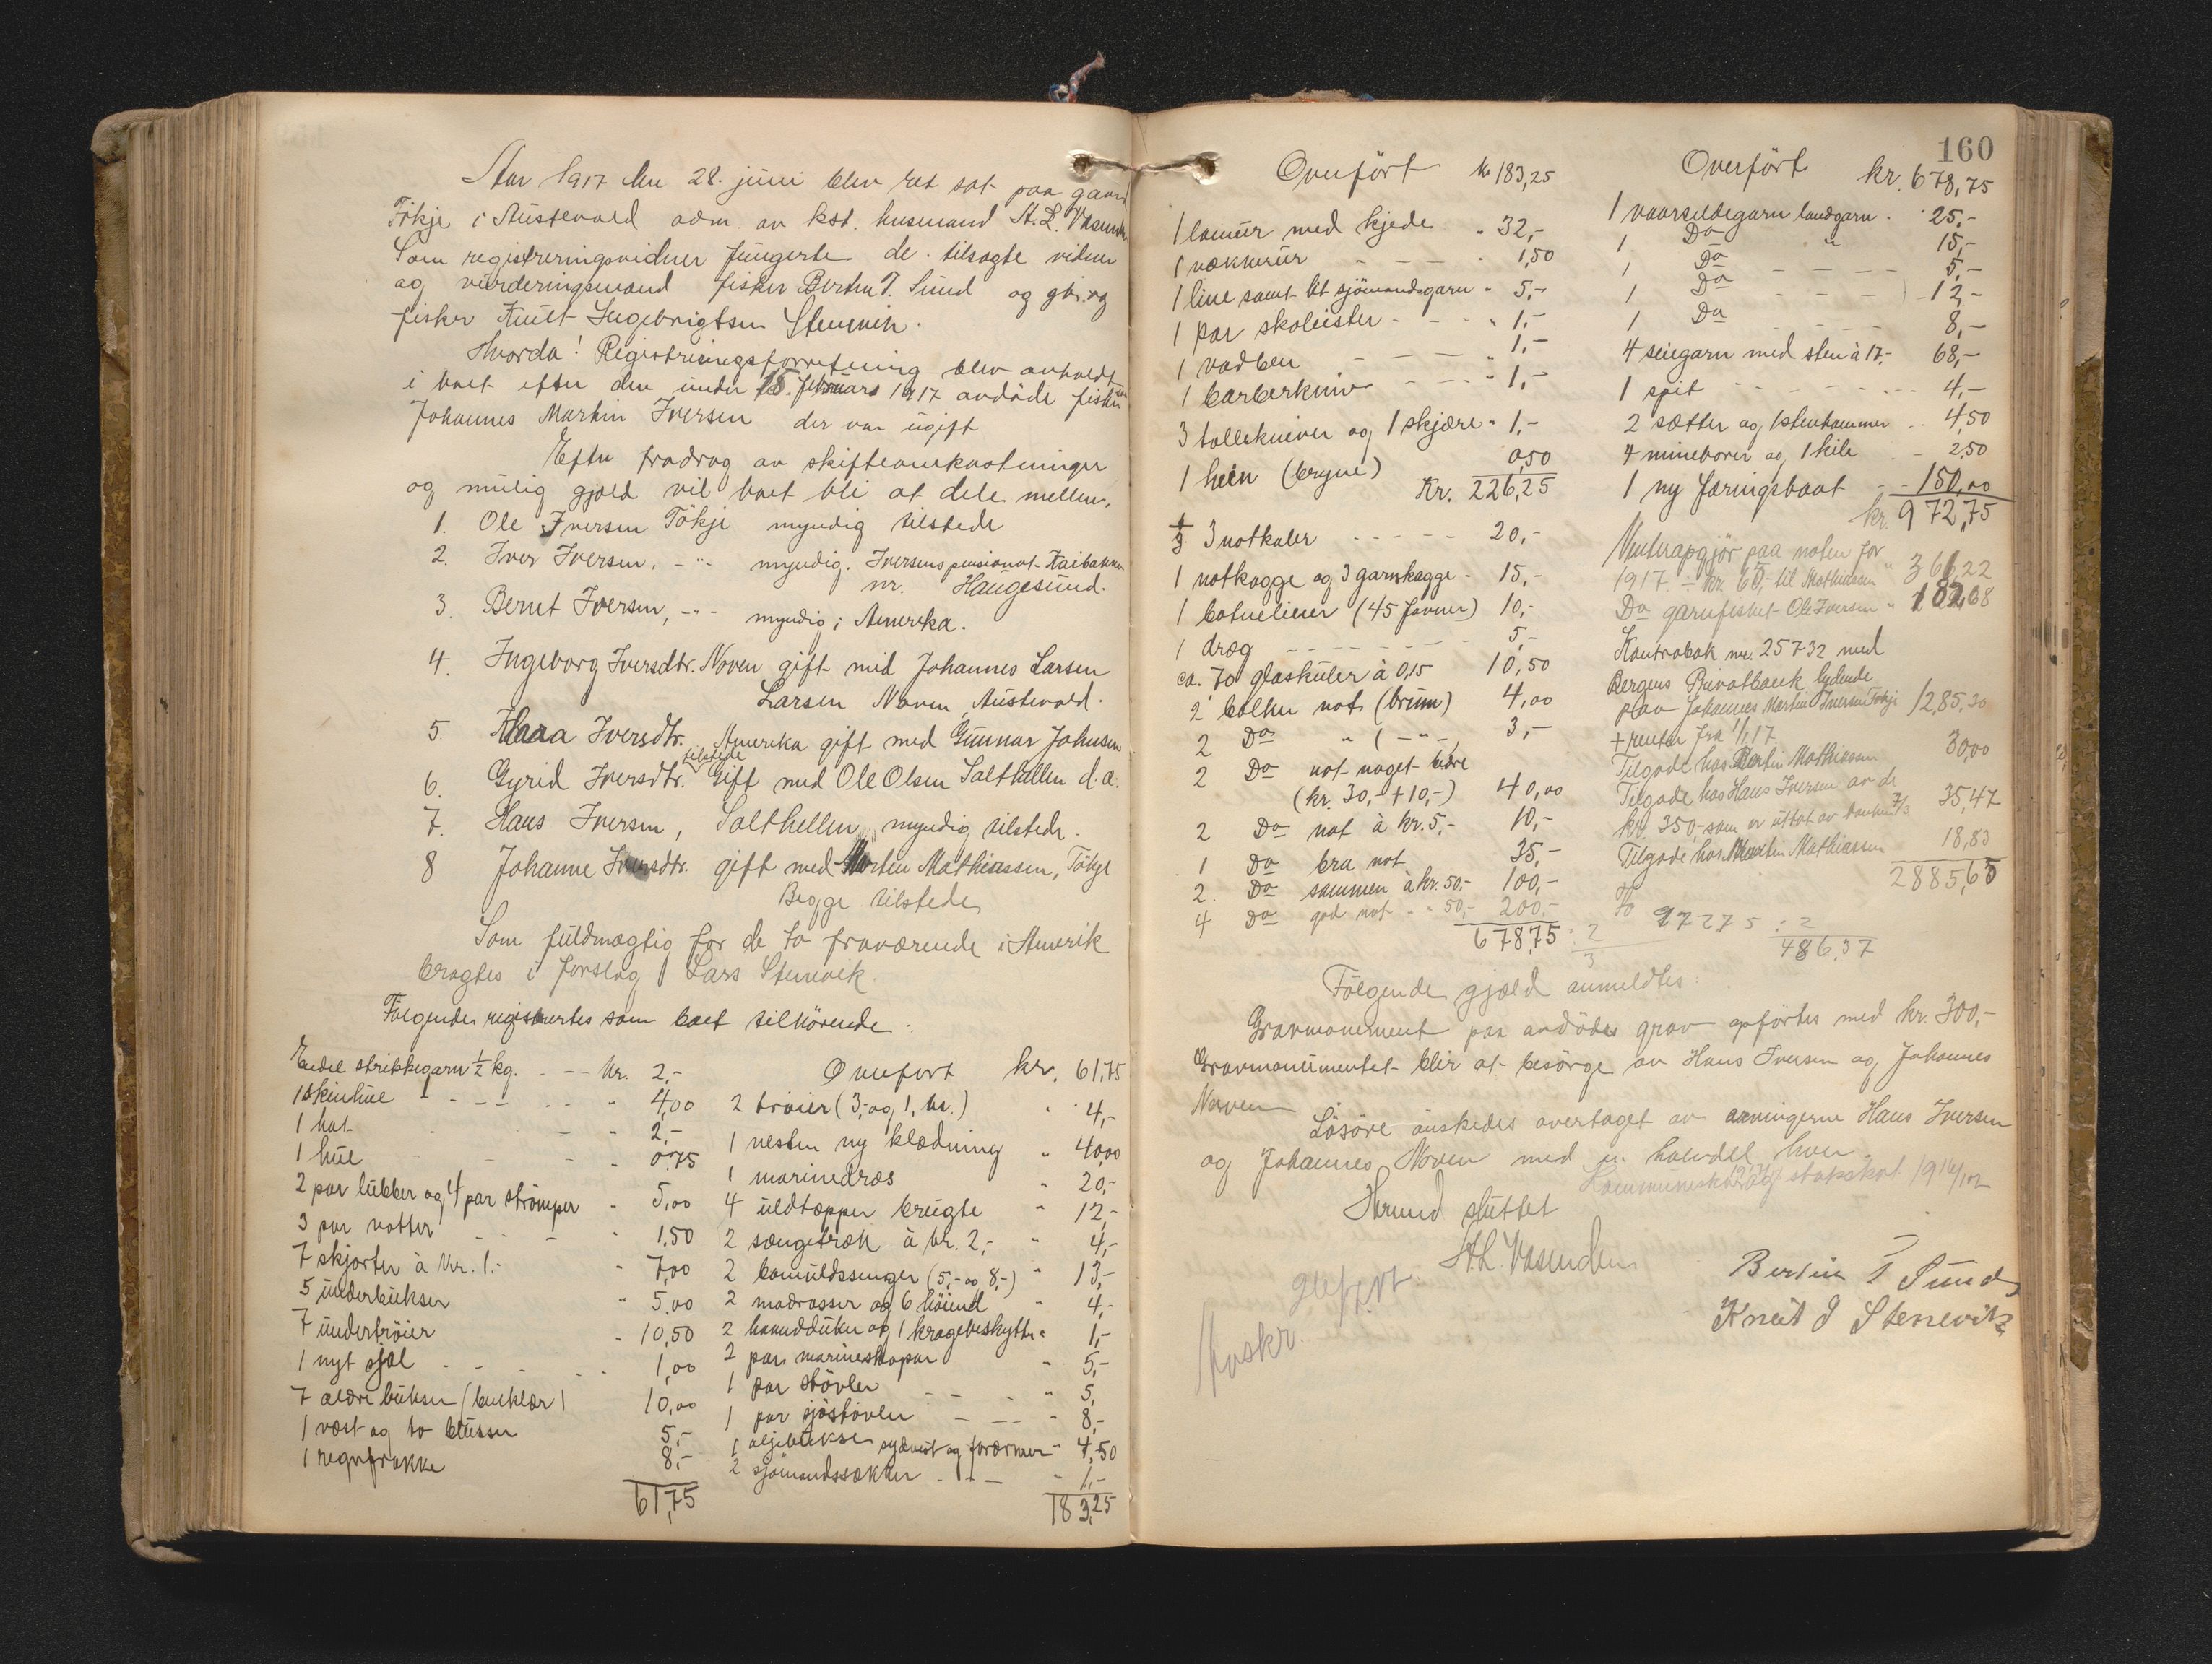 Aar 1917 den 28. juni blev ret sat paa gaard
Tökje i Austevold adm. av kst. lensmand A. L. Vasenden
Som registreringsvidner fungerte de tilsagte vidner
og vurderingsmænd fisker Bertin T. Sund og gbr. og
fisker Knut Ingebrigtsen Stenevik.
Hvorda! Registreringsforretning blev avholdt
i boet efter den under 15. februars 1917 avdöde fisker
Johannes Martin Iversen der var ugift
Efter fradrag av skifteomkostninger
og mulig gjæld vil boet bli at dele mellem,
1. Ole Iversen Tökje myndig tilstede
2. Iver Iversen, -"- myndig. Iversens pensionat Kaibakken
nr. Haugesund.
3. Bernt Iversen, -"- myndig i Amerika.
4. Ingeborg Iversdtr. Noven gift med Johannes Larsen
Larsen Noven, Austevold.
5. Iversdtr. Amerika gift med Gunnar Johnsen
tilstede
6. Gyrid Iversdtr. Gift med Ole Olsen Salthellen d.a.
7. Hans Iversen, Salthellen myndig tilstede.
8 Johanne Iversdtr. gift med Martin Mathiassen, Tökje
Begge tilstede
Som fuldmægtig for de to fraværende i Amerik
bragtes i forslag Lars Stenevik.
Fölgende registrertes som boet tilhörende.
Endel strikkegarn ½ kg. - - kr. 2,-
1 skinhue - - - " 4,00
1 hat - " 2,-
1 hue - - " 0.75
2 par lubber og 4 par strömper " 5,00
3 par votter - " 1.50
7 skjorter à kr. 1.- " 7,00
5 underbukser " 5.00
7 undertröier " 10,50
1 nyt sjal - - 1,00
7 ældre bukser (benklær) 10,00
1 vest og to blusser 5,-
1 regnfrakke 8,-
61,75
Overfört kr. 61,75
2 tröier (3,- og 1, kr.) " 4,-
1 nesten ny klædning " 40,00
1 marinedres " 20,-
4 uldtepper brugte " 12,-
2 sengetræk à kr. 2,- " 4,-
2 bomuldssenger (5,- og 8,-) " 13,-
2 madrasser og 6 höiend " 4,-
2 haandduker og 1 kragebeskytter " 1,-
2 par marineskopar " 5,-
1 par stövler - - " 5,
1 par sjöstövler - - - " 8,-
1 oljebukse sydvest og forærmer " 4,50
2 sjömandssækker - - - " 1,-
183,25
160
Overfört kr 183,25
1 lomeur med kjede " 32,-
1 vækkerur - - - " 1,50
1 line samt lit sjömandsgarn " 5,-
1 par skoleister - - - " 1,-
1 vadben - - - " 1,-
1 barberkniv - - - " 1,-
3 tollekniver og 1 skjære " 1,-
1 hein (bryne) 0,50
Kr. 226,25
3 notkaler - - - - - 20,-
1 notkagge og 3 garnkagge - 15,-
1 botneliner (45 favner) 10,-
1 dræg - - - - - 5,-
ca. 70 glaskuler à 0,15 10,50
2 bolker not (brun) 4,00
2 Do " ( - " - ) 3,-
2 Do not noget bedre
(kr. 30,- + 10,-) 40,00
2 Do not à kr. 5,- 10,-
1 Do bra not 35,-
2. Do sammen à kr. 50,- 100,-
4 Do god not - " 50,- 200,-
678,75 : 2
3
Overfört kr. 678,75
1 vaarsildegarn landgarn - 25,-
1 Do " 15,-
1 Do - - - - 5,-
1 Do - - - 12,-
1 Do - - - 8,-
4 seiegarn med sten à 17,- 68,-
1 spit - - - - - 4,-
2 sætter og 1 stenhammer - - 4,50
4 mineborer og 1 kile - - 2,50
1 ny færingsbaat - - 150,00
kr. 972,75
Vinteropgjör paa noten for
1917 ÷ kr 60,- til Mathiassen " 366,22
Do garnfisket Ole Iversen " 182,08
Kontrabok nr. 25732 med
Bergens Privatbank lydende
paa Johannes Martin Iversen Tökje 1285,30
+ renter fra 1/1 17
Tilgode hos Bertin Mathiassen 30,00
Tilgode hos Hans Iversen av de
kr. 350,- som er uttat av banken 7/3 35,47
Tilgode hos Martin Mathiassen 18,83
2885,65
97275 : 2
486,37
Fölgende gjæld anmeldtes:
Gravmonement paa avdödes grav opförtes med kr. 300,-
Gravmonumentet blir at besörge av Hans Iversen og Johannes
Noven
Lösöre önskedes overtaget av arvingerne Hans Iversen
og Johannes Noven med en halvdel hver.
Kommuneskat og statsskat 1916/17
Herved sluttet
A. L. Vasenden
Bertin T Sund
Knut I Stenevik